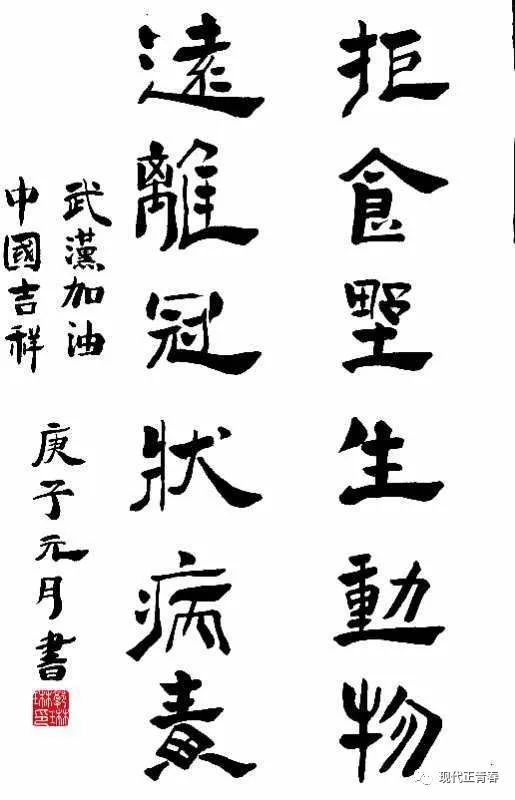 拒食野生動物
遠離冠狀病毒
武漢加油
中國吉祥
庚子元月書
现代正青春